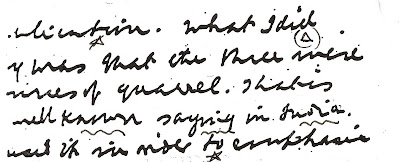 ulication. What I did
y was that the three were
urces of quarrel. That is
well known saying in India.
used it in order to emphasis